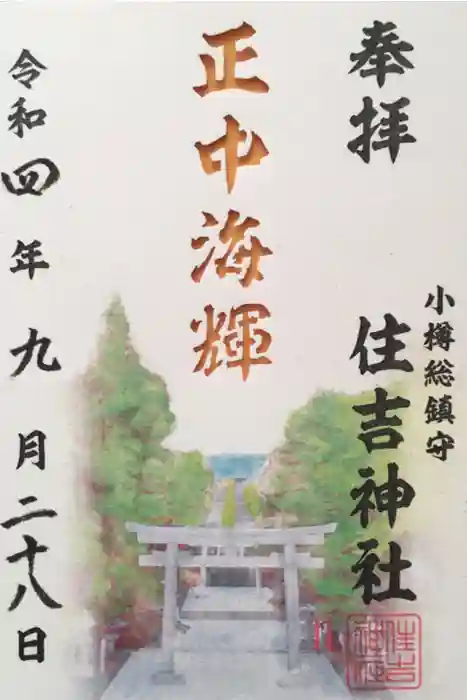 奉拝
小樽総鎮守
住吉神社
正中海輝
令和四年九月二十八日
住吉神社